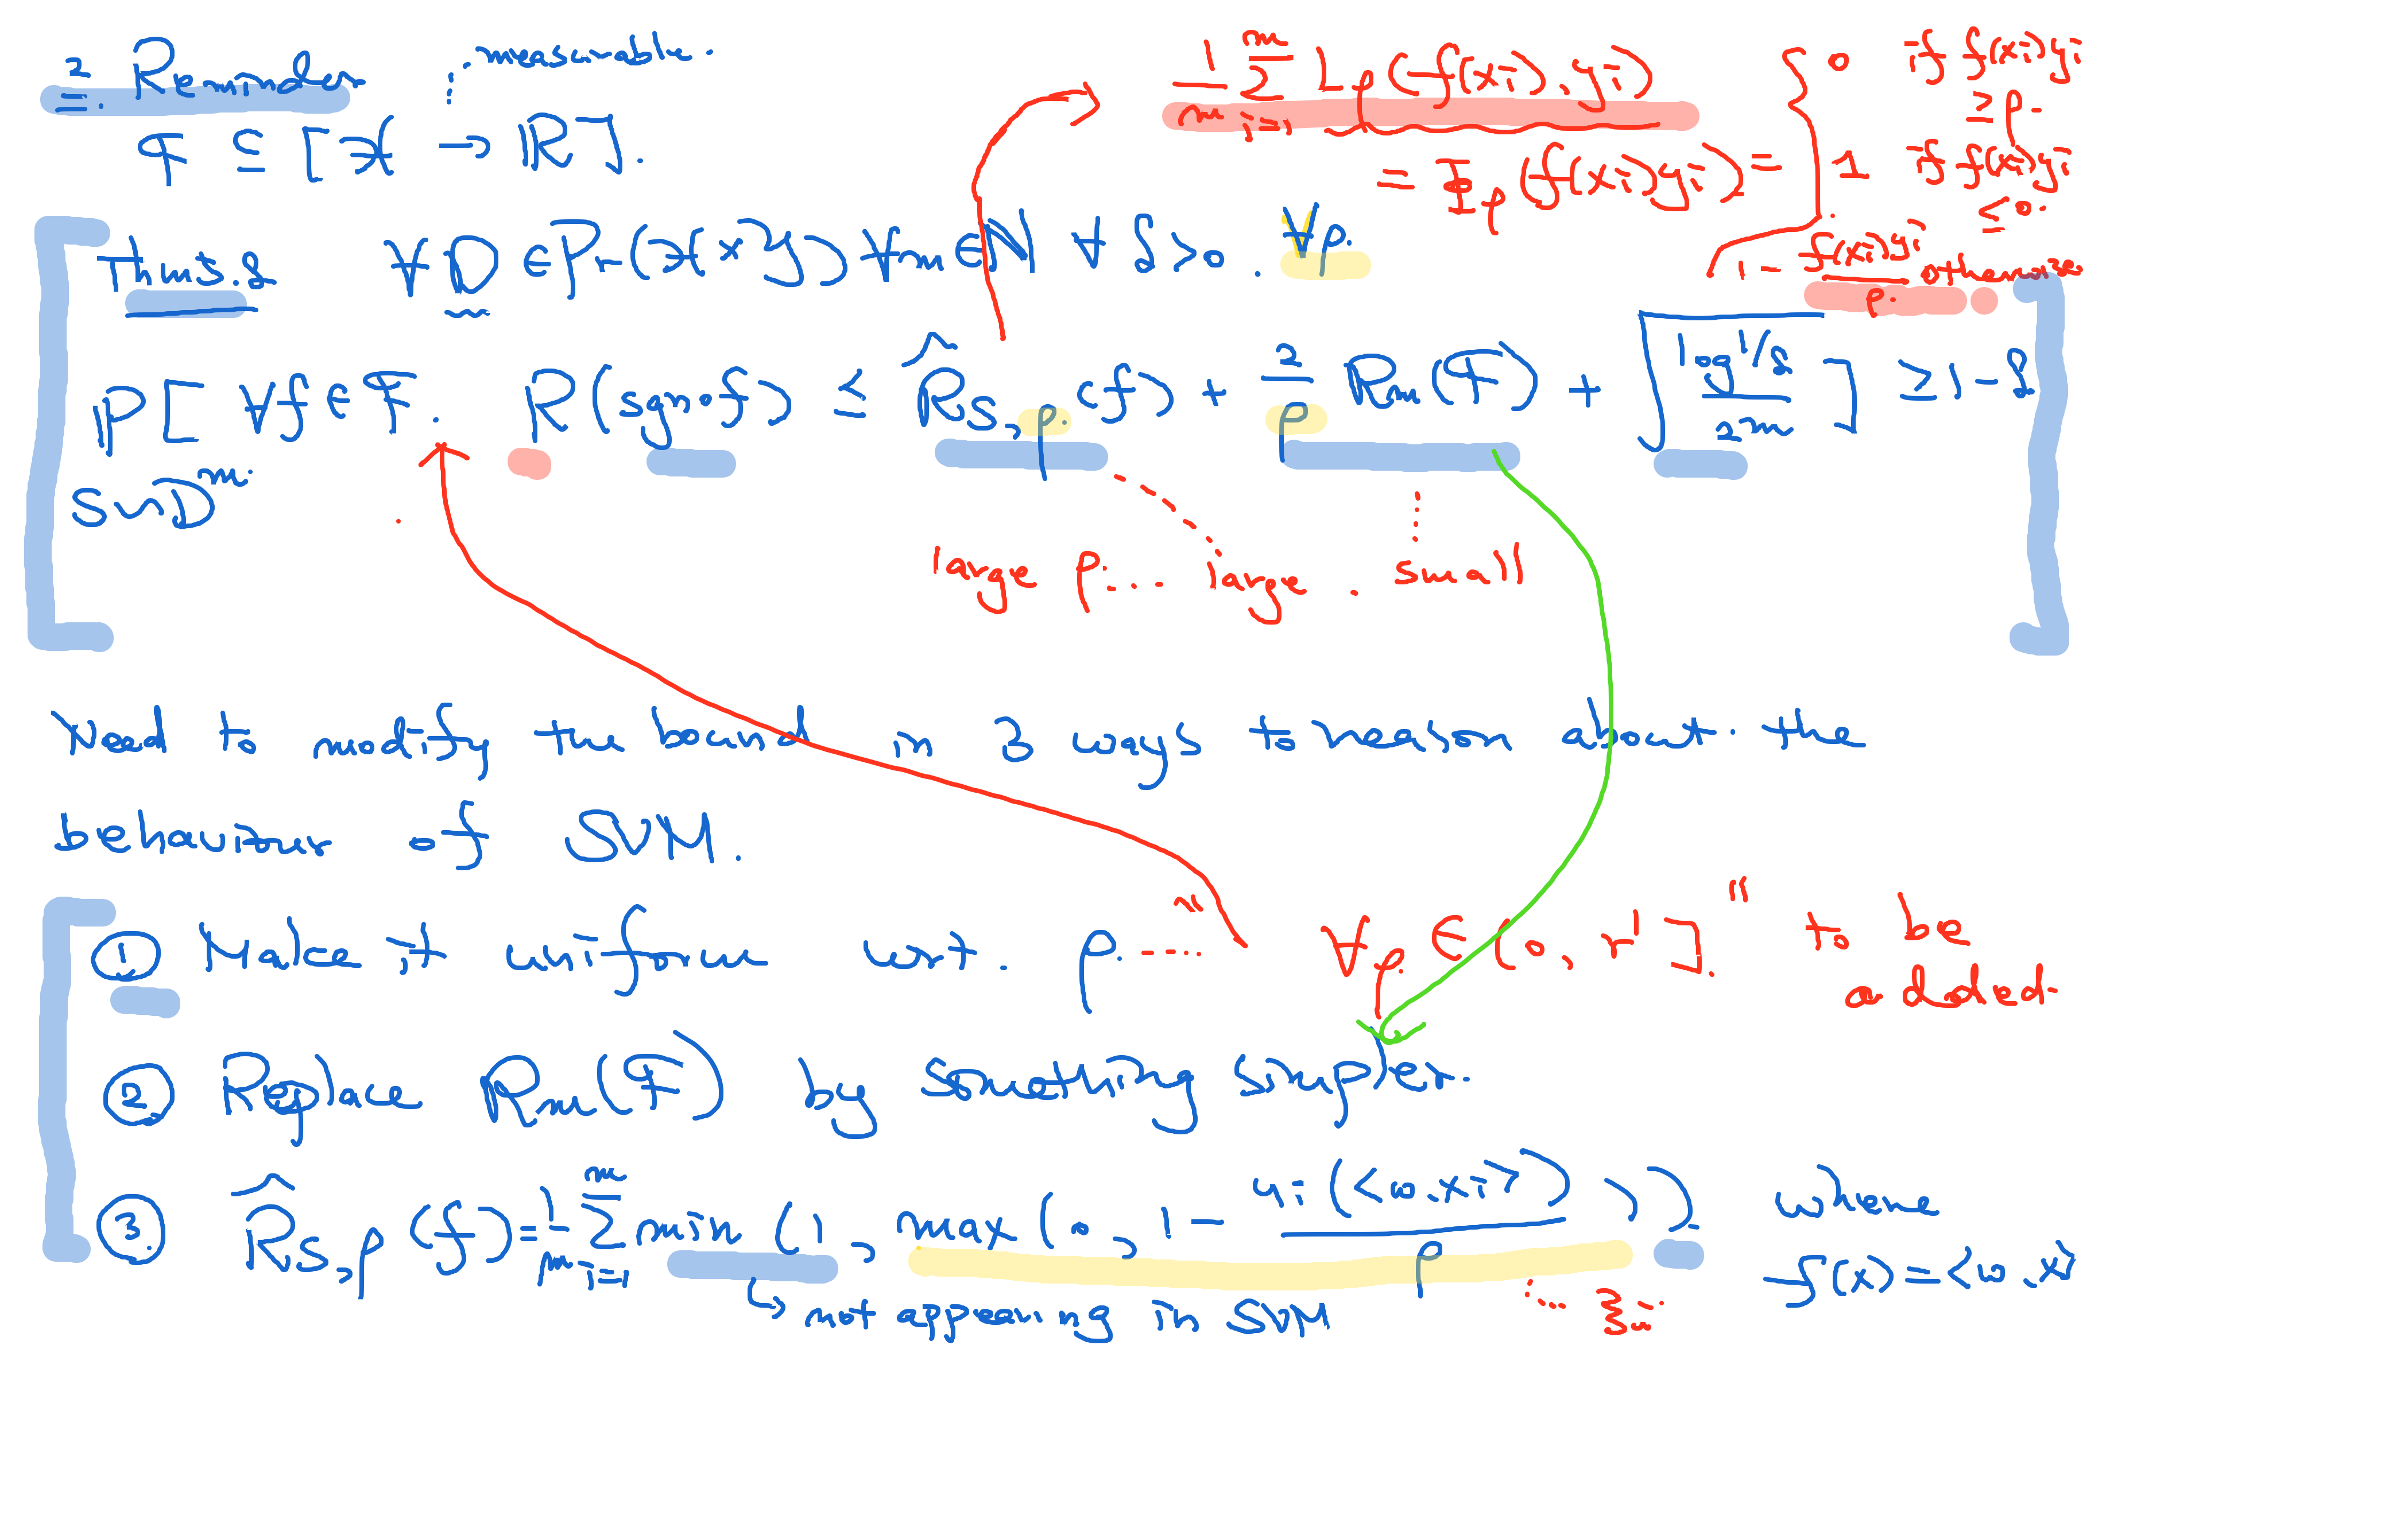 2. Reminder
measurable.
F ⊆ [X → R].
1/m Σ_{i=1}^m L_ρ(f(xi), yi)
= Φ_ρ(f(xi)yi) = { 0 if f(xi)yi ≥ ρ.
1 if f(xi)yi ≤ 0.
1 - f(xi)yi / ρ. otherwise
Thm5.8 ∀D ∈ Pr(X×Y) ∀m ∈ N ∀δ>0. ∀ρ.
P[ ∀f ∈ F. R(sgn∘f) ≤ R̂_{S,ρ}(f) + 2/ρ Rm(F) + √(log 1/δ / 2m) ] ≥ 1-δ
S~D^m.
large ρ.... large. small
Need to modify the bound in 3 ways to reason about the
behaviour of SVM.
① Make it uniform wrt. ρ.... " ∀ρ ∈ (0, r]." to be
added.
② Replace Rm(F) by something simpler.
③. R̂_{S,ρ}(f) = 1/m Σ_{i=1}^m min(1, max(0, 1 - yi(<w,xi>)/ρ)) where
f(x) = <w,x>
↳ not appearing in SVM
.... ξi.